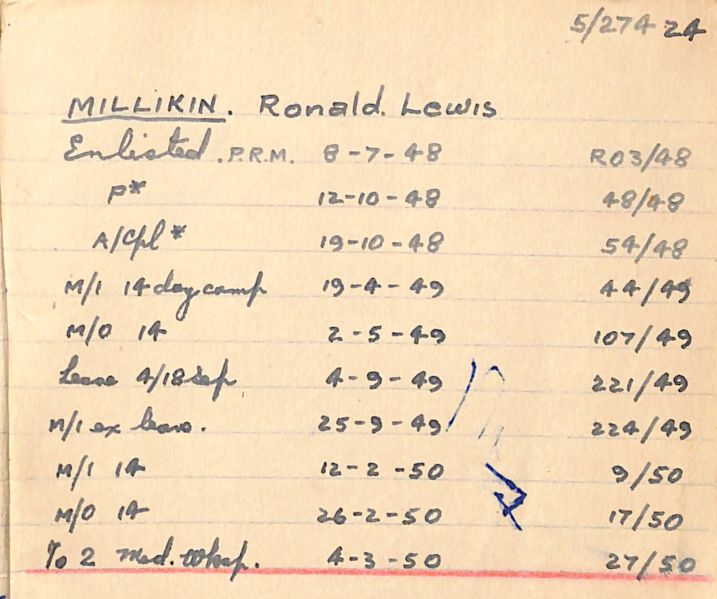 5/274 24
MILLIKIN. Ronald. Lewis
Enlisted. P.R.M. 8-7-48 R03/48
P* 12-10-48 48/48
A/Cpl* 19-10-48 54/48
M/I 14 day camp 19-4-49 44/49
M/O 14 2-5-49 107/49
Leave 4/18 Sep 4-9-49 221/49
M/I ex leave. 25-9-49 224/49
M/I 14 12-2-50 9/50
M/O 14 26-2-50 17/50
To 2 Med. Wksp. 4-3-50 27/50